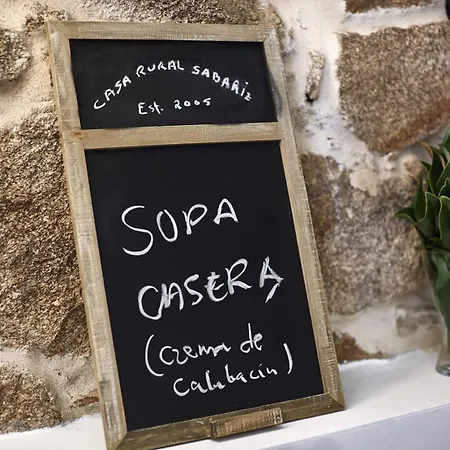 CASA RURAL SABARIZ
Est. 2005
SOPA
CASERA
(Crema de
Calabacín)